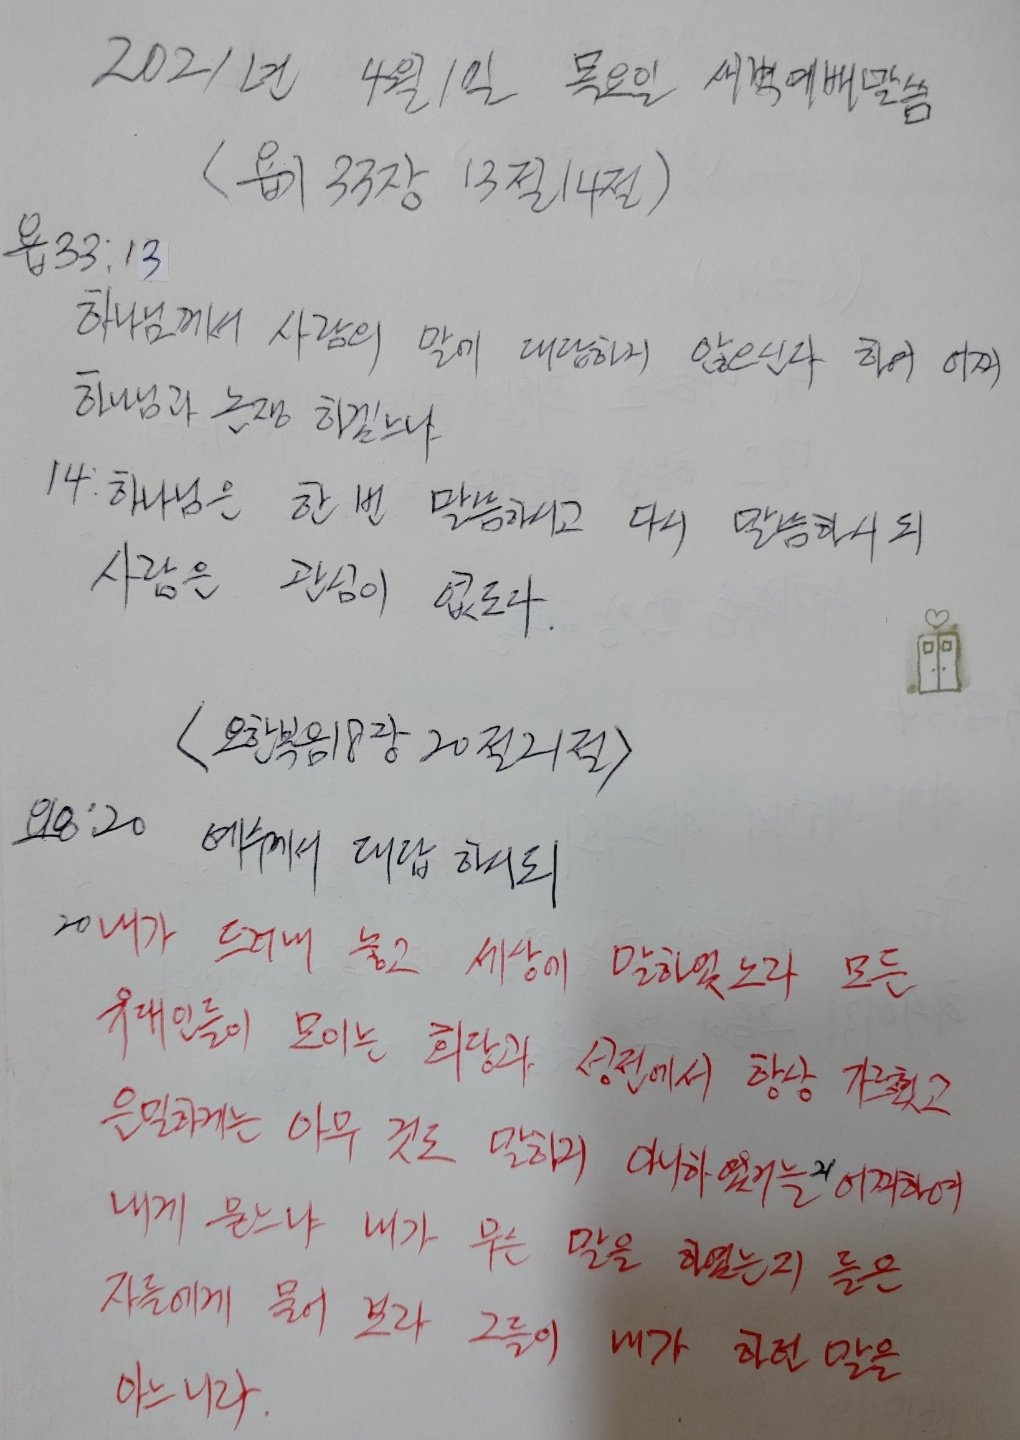 2021년 4월 1일 목요일 새벽예배말씀
<욥기 33장 13절 14절>
욥33:13
하나님께서 사람의 말에 대답하지 않으신다 하여 어찌
하나님과 논쟁 하겠느냐
14: 하나님은 한 번 말씀하시고 다시 말씀하시되
사람은 관심이 없도다.
<요한복음18장 20절21절>
요18:20 예수께서 대답 하시되
20 내가 드러내 놓고 세상에 말하였노라 모든
유대인들이 모이는 회당과 성전에서 항상 가르쳤고
은밀하게는 아무 것도 말하지 아니하였거늘 21 어찌하여
내게 묻느냐 내가 무슨 말을 하였는지 들은
자들에게 물어 보라 그들이 내가 하던 말을
아느니라.